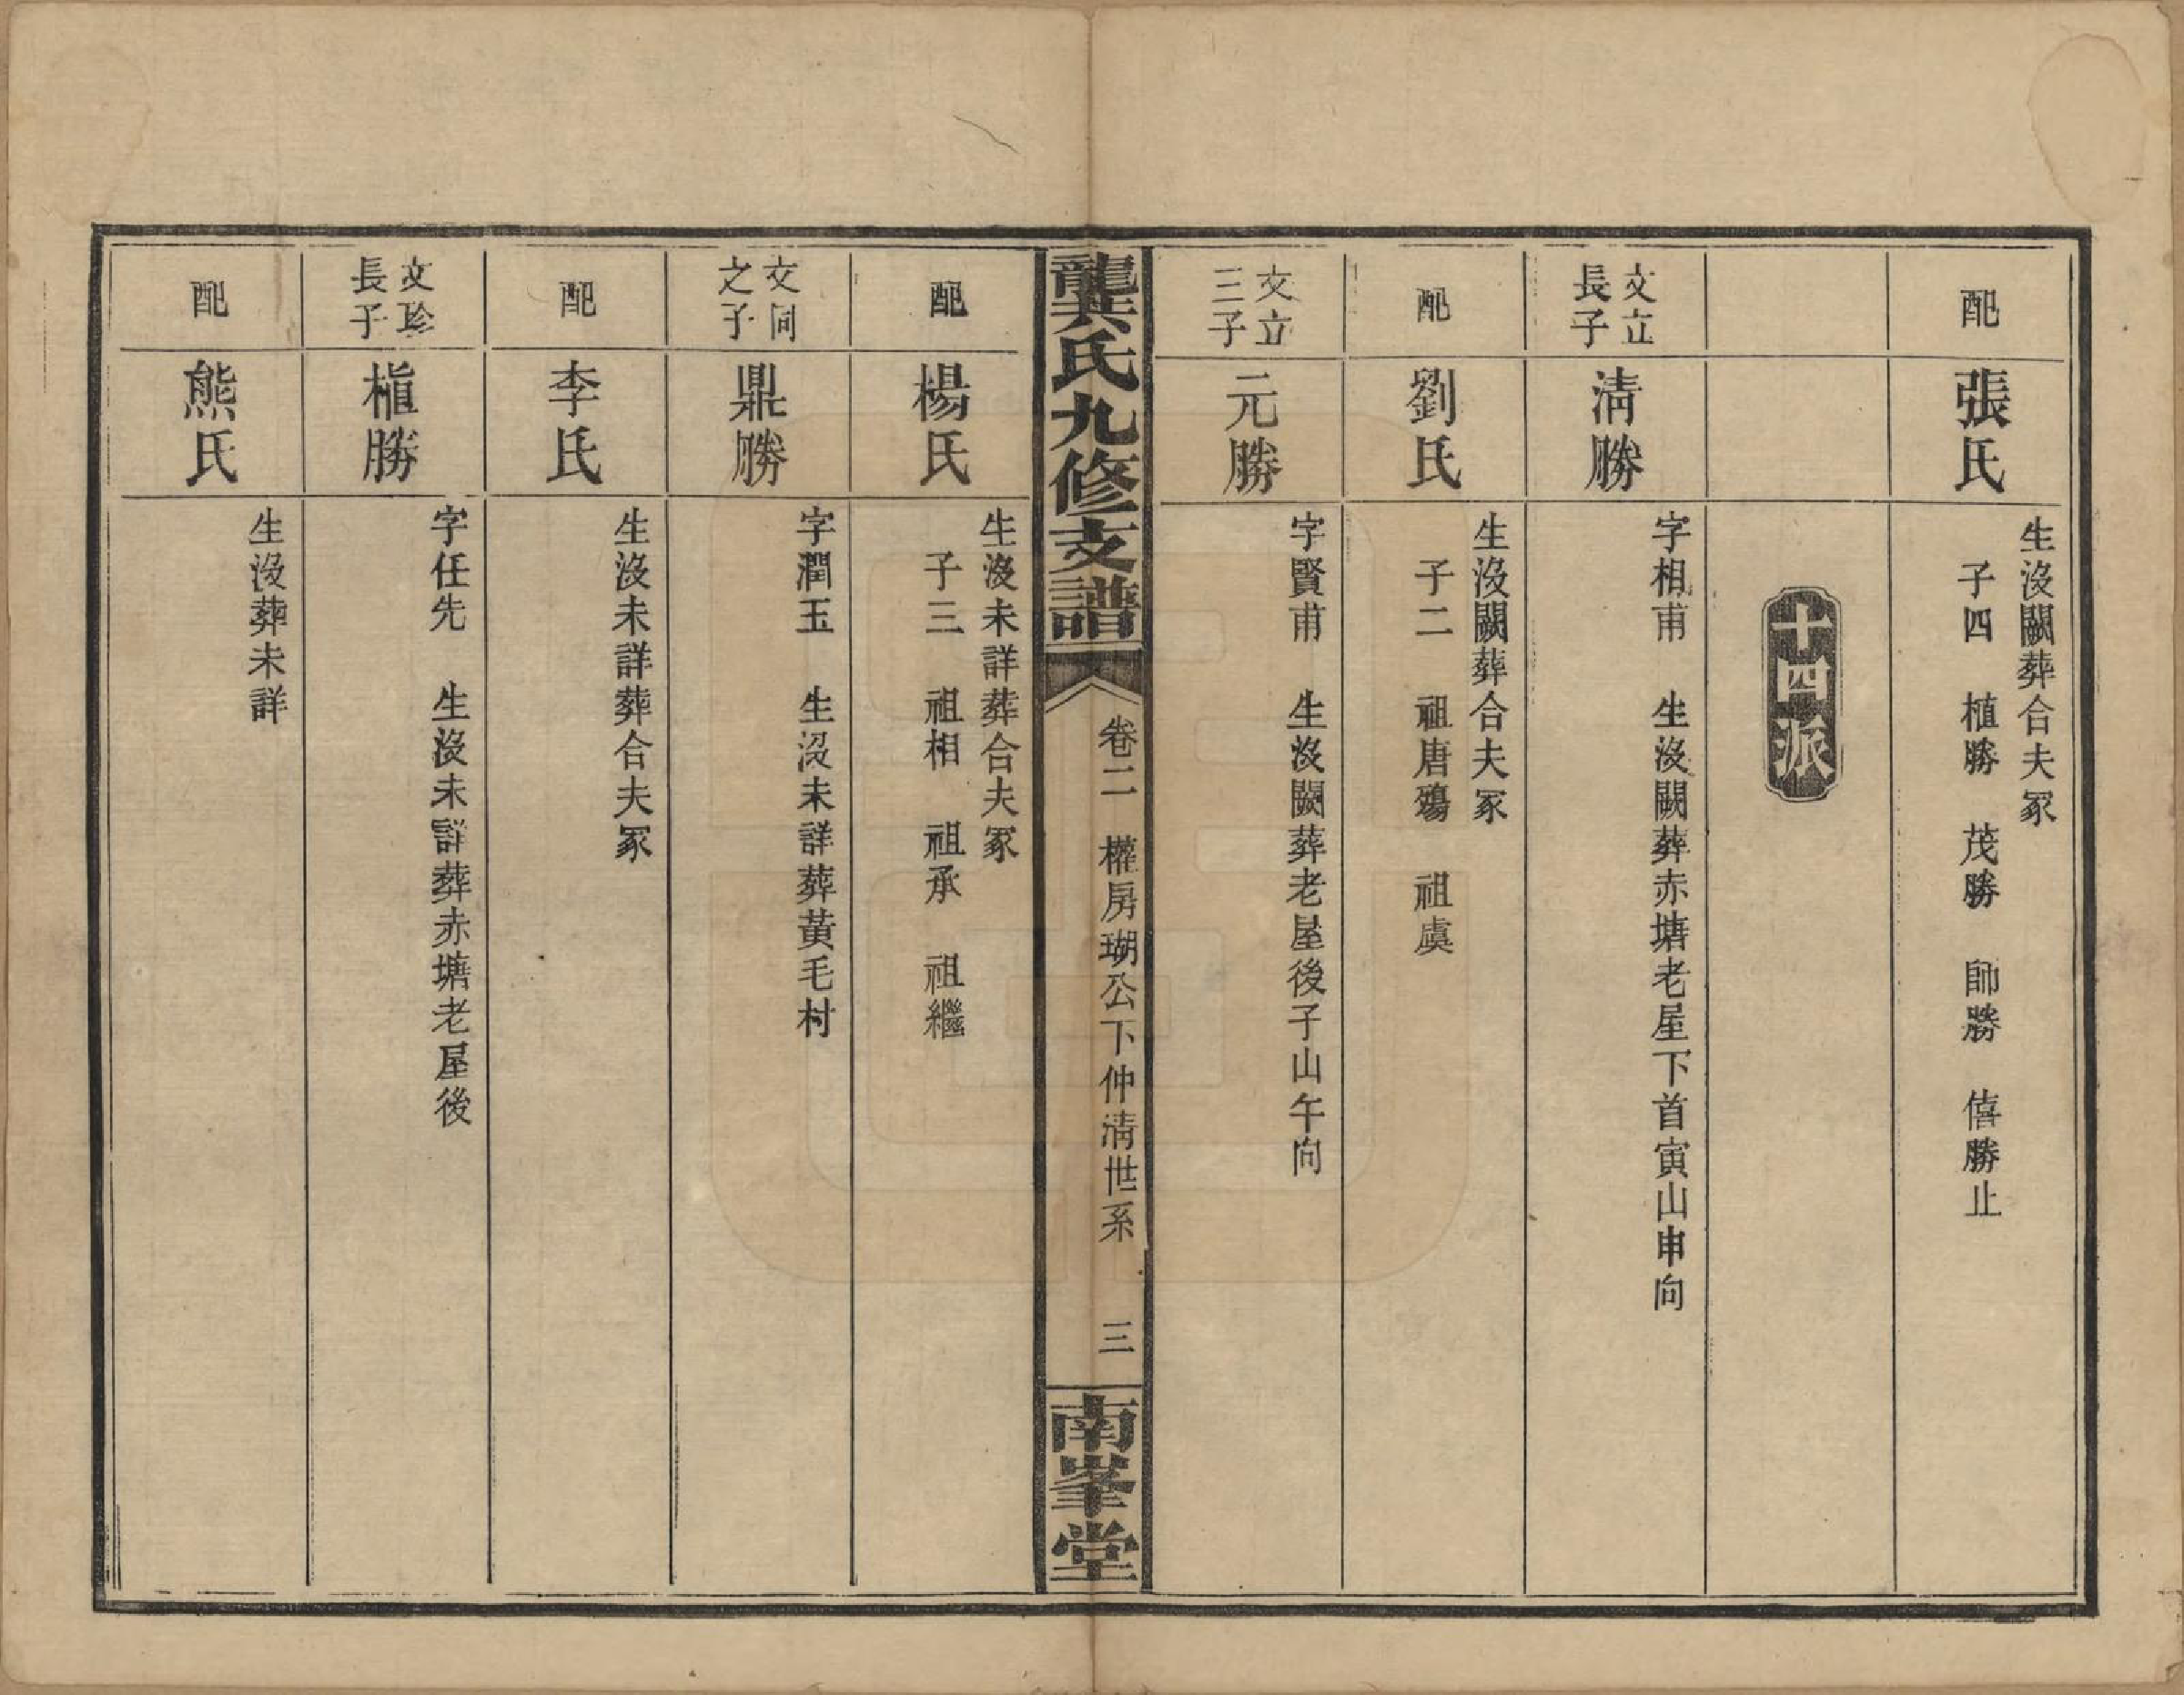 配
張氏
生沒闕葬合夫冢
子四　植勝　茂勝　師勝　僖勝止
十四派
文立
長子
淸勝
字相甫　生沒闕葬赤塘老屋下首寅山申向
配
劉氏
生沒闕葬合夫冢
子二　祖唐殤　祖虞
文立
三子
元勝
字賢甫　生沒闕葬老屋後子山午向
龔氏九修支譜
卷二　權房瑚公下仲淸世系　三
南峯堂
配
楊氏
生沒未詳葬合夫冢
子三　祖相　祖承　祖繼
文同
之子
鼎勝
字潤玉　生沒未詳葬黃毛村
配
李氏
生沒未詳葬合夫冢
文珍
長子
植勝
字任先　生沒未詳葬赤塘老屋後
配
熊氏
生沒葬未詳